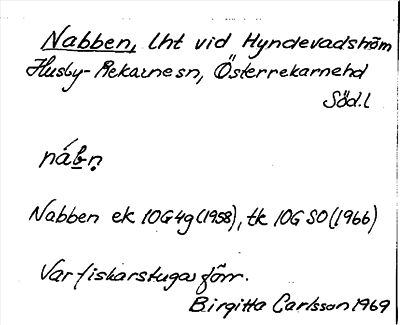 Nabben, lht vid Hyndevadström
Husby-Rekarne sn, Österrekarne hd
Söd.l
náb̲ṇ
Nabben ek 10G4g (1958), tk 10G SO (1966)
Var fiskarstuga förr.
Birgitta Carlsson 1969